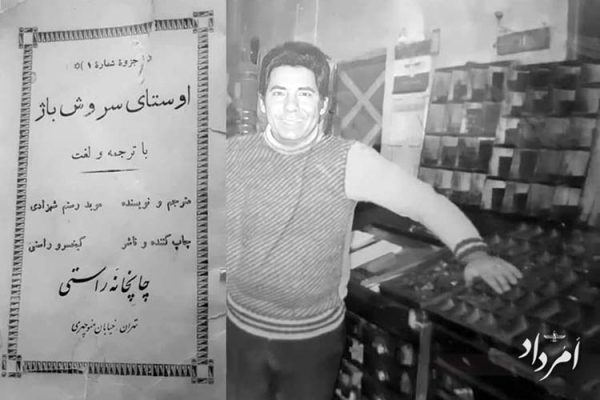 جزوهٔ شمارهٔ (۱)
اوستای سروش باژ
با ترجمه و لغت
مترجم و نویسنده موبد رستم شهزادی
چاپ کننده و ناشر کیخسرو راستی
چاپخانه راستی
تهران خیابان منوچهری
اَمُرداد